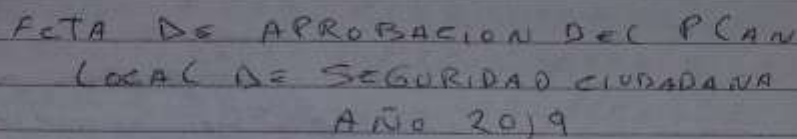 ACTA DE APROBACION DEL PLAN
LOCAL DE SEGURIDAD CIUDADANA
AÑO 2019